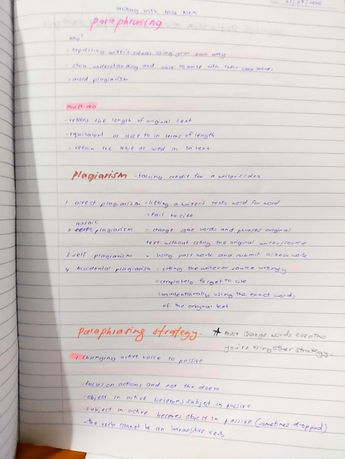 Writing with
paraphrasing
why?
- expressing writer's ideas using your own way
- show understanding and able to write with their own words
- avoid plagiarism
must do
- retains the length of original text
- equivalent or close to in terms of length
- retain the
Plagiarism - taking credit for a writer's idea
1. direct plagiarism - lifting a writer's texts word for word
- fail to cite
mosaic
2 plagiarism - change some words and phrases original
text without citing the original writer/source
3 self-plagiarism - using past works and submit as new work
4 Accidental plagiarism - citing the writer or source wrongly
- completely forget to cite
- unintentionally using the exact words
of the original text
Paraphrasing strategy. * Must change words even tho
you're using other strategy
1. changing active voice to passive
- focus on actions and not the doers
- object in active becomes subject in passive
- subject in active becomes object in passive (sometimes dropped)
- the verb cannot be an intransitive verb